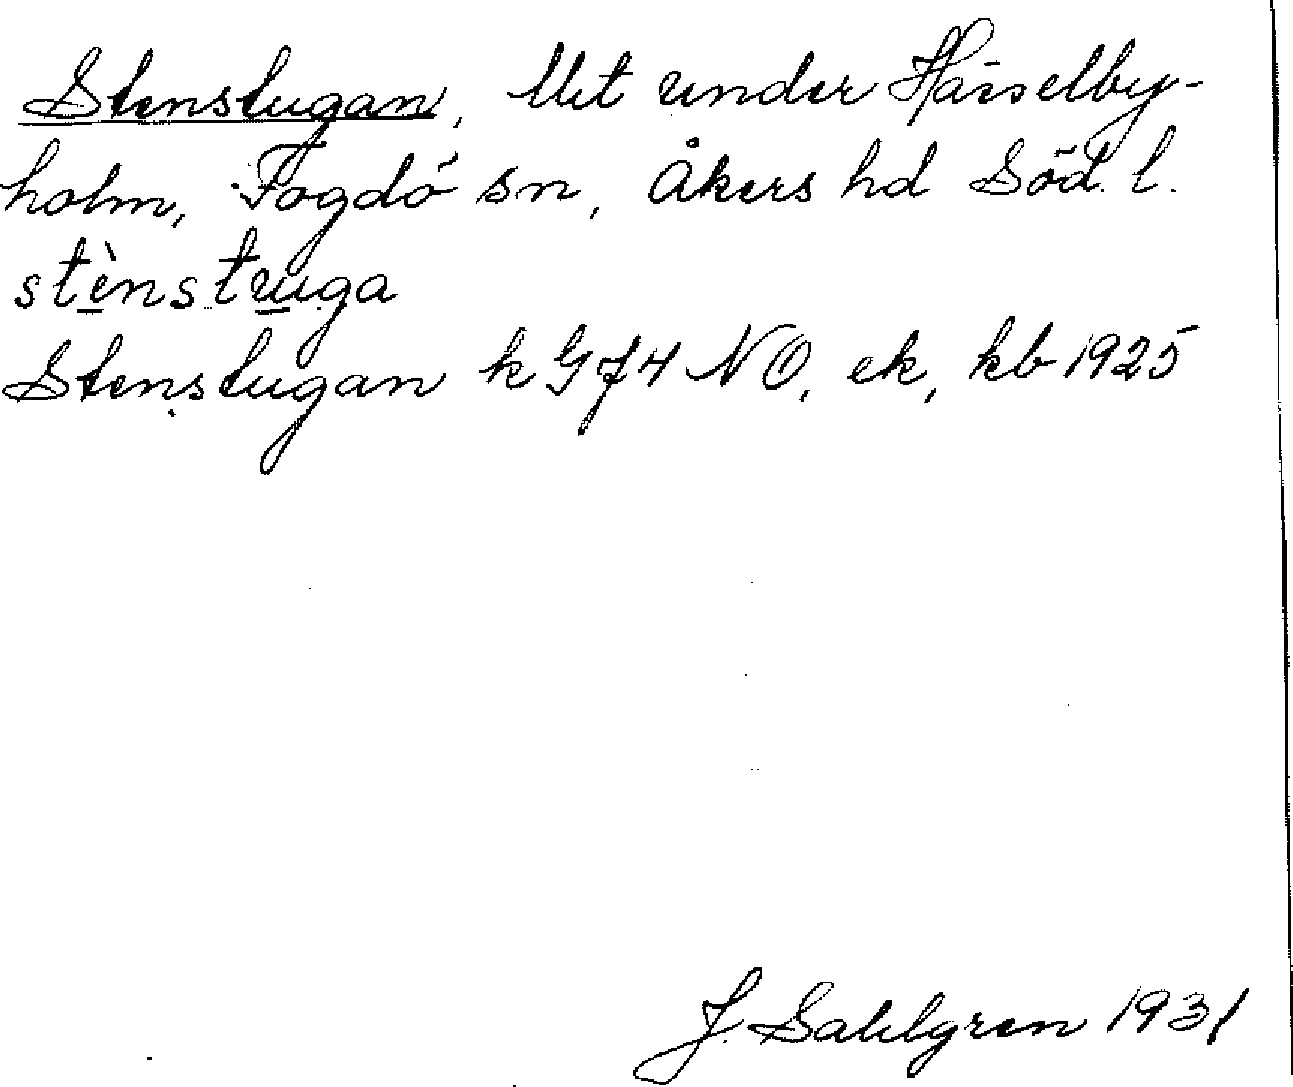 Stenstugan, Utjt under Hässelby-
holm, Fogdö sn, Åkers hd Söd. l.
stènstuga
Stenstugan k GJ4 NO, ek, kb 1925
J. Sahlgren 1931